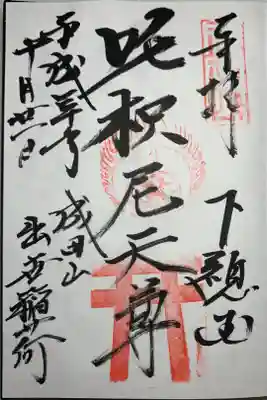 奉拝
下總国
吒枳尼天尊
成田山
出世稲荷
平成三十年
十月廿一日